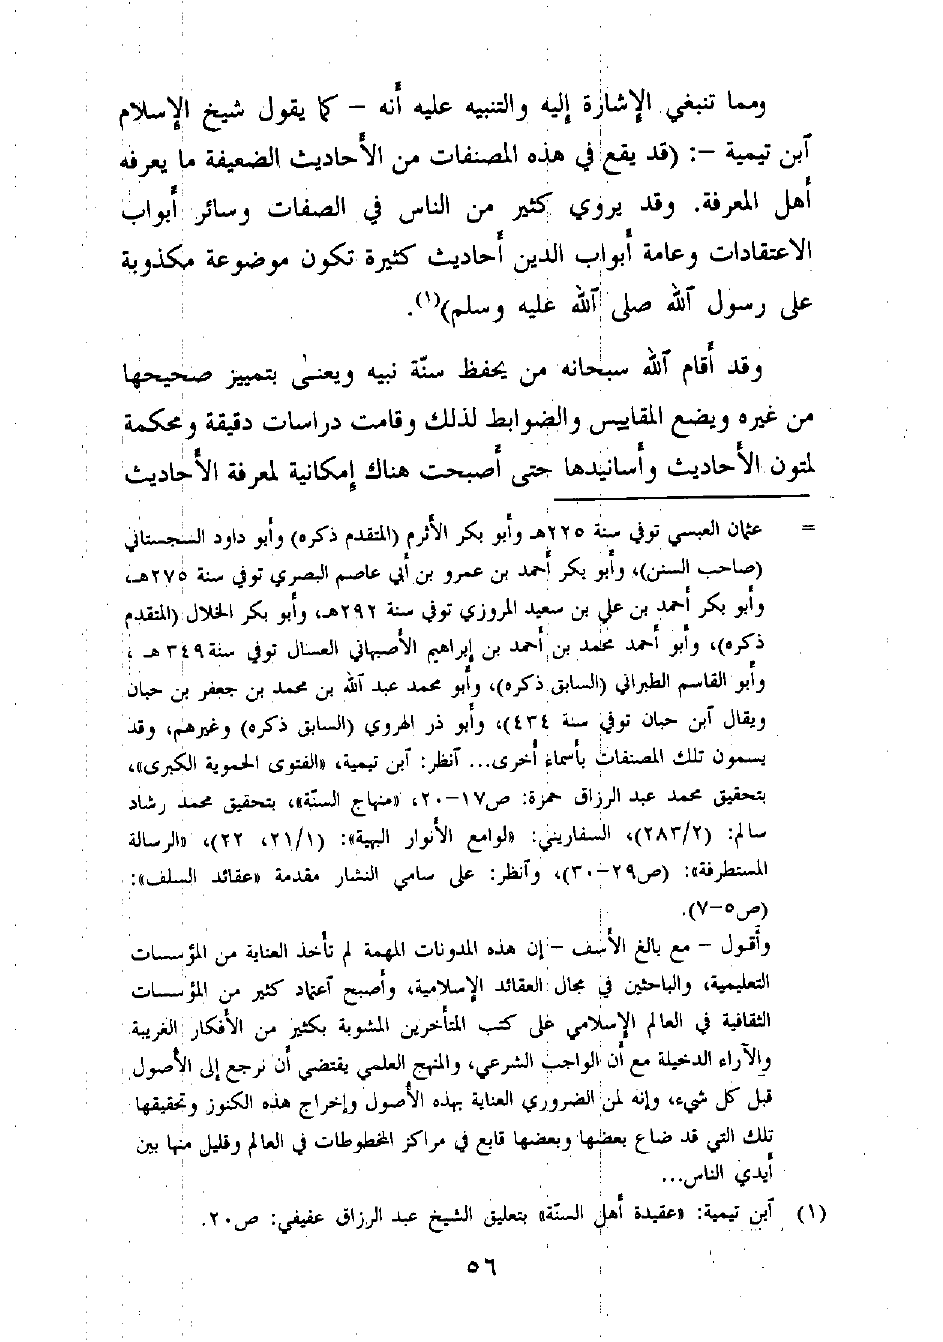 ومما تنبغي الإشارة إليه والتنبيه عليه أنه – كما يقول شيخ الإسلام
آبن تيمية –: (قد يقع في هذه المصنفات من الأحاديث الضعيفة ما يعرفه
أهل المعرفة. وقد يروي كثير من الناس في الصفات وسائر أبواب
الاعتقادات وعامة أبواب الدين أحاديث كثيرة تكون موضوعة مكذوبة
على رسول آلله صلى آلله عليه وسلم)(١).
وقد أقام آلله سبحانه من يحفظ سنّة نبيه ويعنى بتمييز صحيحها
من غيره ويضع المقاييس والضوابط لذلك وقامت دراسات دقيقة ومحكمة
لمتون الأحاديث وأسانيدها حتى أصبحت هناك إمكانية لمعرفة الأحاديث
= عثمان العبسي توفي سنة ٢٢٥هـ وأبو بكر الأثرم (المتقدم ذكره) وأبو داود السجستاني
(صاحب السنن)، وأبو بكر أحمد بن عمرو بن أبي عاصم البصري توفي سنة ٢٧٥هـ،
وأبو بكر أحمد بن علي بن سعيد المروزي توفي سنة ٢٩٢هـ، وأبو بكر الخلال (المتقدم
ذكره)، وأبو أحمد محمد بن أحمد بن إبراهيم الأصبهاني العسال توفي سنة ٣٤٩هـ،
وأبو القاسم الطبراني (السابق ذكره)، وأبو محمد عبد آلله بن محمد بن جعفر بن حبان
ويقال آبن حبان توفي سنة ٤٣٤)، وأبو ذر الهروي (السابق ذكره) وغيرهم، وقد
يسمون تلك المصنفات بأسماء أخرى... آنظر: آبن تيمية، «الفتوى الحموية الكبرى»،
بتحقيق محمد عبد الرزاق حمزة: ص١٧–٢٠، «منهاج السنّة»، بتحقيق محمد رشاد
سالم: (٢٨٣/٢)، السفاريني: «لوامع الأنوار البهية»: (٢١/١، ٢٢)، «الرسالة
المستطرفة»: (ص٢٩–٣٠)، وآنظر: علي سامي النشار مقدمة «عقائد السلف»:
(ص٥–٧).
وأقول – مع بالغ الأسف – إن هذه المدونات المهمة لم تأخذ العناية من المؤسسات
التعليمية، والباحثين في مجال العقائد الإسلامية، وأصبح آعتماد كثير من المؤسسات
الثقافية في العالم الإسلامي على كتب المتأخرين المشوبة بكثير من الأفكار الغريبة
والآراء الدخيلة مع أن الواجب الشرعي، والمنهج العلمي يقتضي أن نرجع إلى الأصول
قبل كل شيء، وإنه لمن الضروري العناية بهذه الأصول وإخراج هذه الكنوز وتحقيقها
تلك التي قد ضاع بعضها وبعضها قابع في مراكز المخطوطات في العالم وقليل منها بين
أيدي الناس...
(١) آبن تيمية: «عقيدة أهل السنّة» بتعليق الشيخ عبد الرزاق عفيفي: ص٢٠.
٥٦